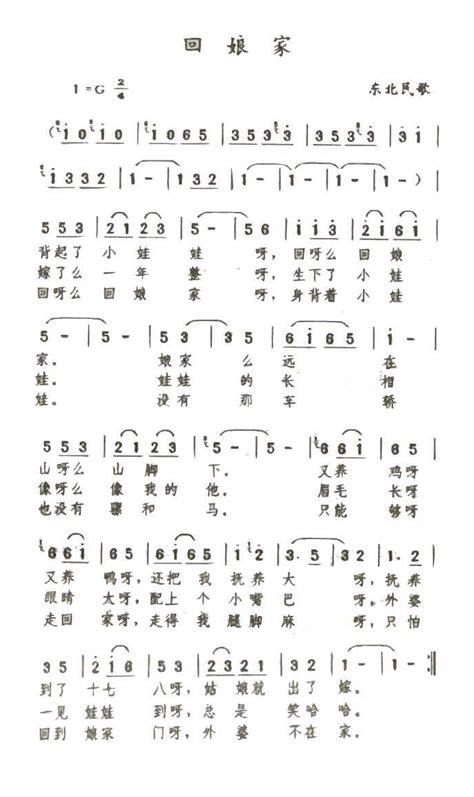 回娘家
1=G 2/4 东北民歌
(i0 i0 | i065 | 3533 | 353i | 3i |
i332 | 1- | 132 | 1- | 1- | 1- | 1-)
553 | 2123 | 5- | 56 | iii3 | 2i6i |
背起了 小娃 娃 呀,回呀么 回娘
嫁了么 一年 整 呀,生下了 小娃
回呀么 回娘 家 呀,身背着 小娃
5- | 5- | 553 | 35 | 6i65 | 1- |
家。 娘家 么 远 在
娃。 娃娃 的 长 相
娃。 没有 那 车 轿
553 | 2123 | 5- | 5- | 66i | 65 |
山呀么 山脚 下。 又养 鸡呀
像呀么 像我的 他。 眉毛 长呀
也没有 骡和 马。 只能 够呀
66i | 565 | 6i65 | i·2 | 3·532 | 1·2 |
又养 鸭呀,还把 我 抚养大 呀,抚养
眼睛 大呀,配上 个 小嘴巴 呀,外婆
走回 家呀,走得 我 腿脚麻 呀,只怕
35 | 2i6 | 53 | 2321 | 132 | 1- | 1- :‖
到了 十七 八呀,姑 娘就 出了 嫁。
一见 娃娃 到呀,总 是 笑哈 哈。
回到 娘家 门呀,外 婆 不在 家。